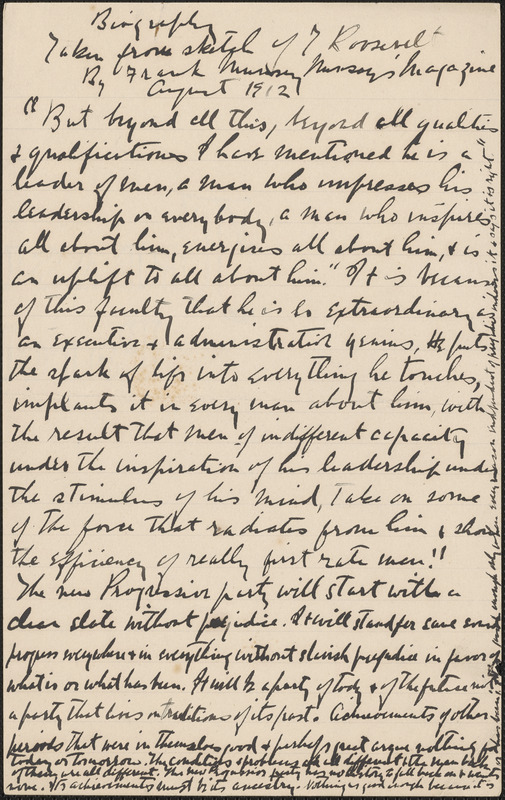 Biography
Taken from sketch of T Roosevelt
By Frank Munsey Munsey's Magazine
August 1912
"But beyond all this, beyond all qualities
& qualifications I have mentioned he is a
leader of men, a man who impresses his
leadership on everybody, a man who inspires
all about him, energizes all about him, & is
an uplift to all about him." It is because
of this faculty that he is so extraordinary as
an executive & administrative genius. He puts
the spark of life into everything he touches,
implants it in every man about him, with
the result that men of indifferent capacity
under the inspiration of his leadership under
the stimulus of his mind, take on some
of the force that radiates from him & show
the efficiency of really first rate men!!
The new Progressive party will start with a
clean slate without prejudice. It will stand for sane sound
progress everywhere & in everything without slavish prejudice in favor of
what is or what has been. It will be a party of today & of the future not
a party that lives on traditions of its past. Achievements of other
periods that were in themselves good & perhaps great argue nothing for
today or tomorrow. The conditions & problems are all different & the men back
of them are all different. The new Progressive party has no history to fall back on & wants
none. Its achievements must be its ancestry. Nothing is good enough because it
has been. It is good enough only when every reason independent of prejudice says it is right"